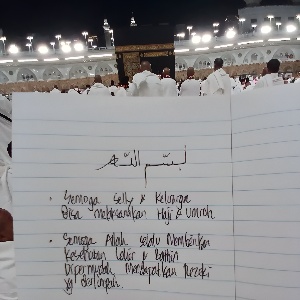 بسم الله
• Semoga Selly & Keluarga
Bisa melaksanakan Haji & Umroh
• Semoga Allah selalu Memberikan
Kesehatan Lahir & Bathin
Dipermudah Mendapatkan Rezeki
yg berlimpah.